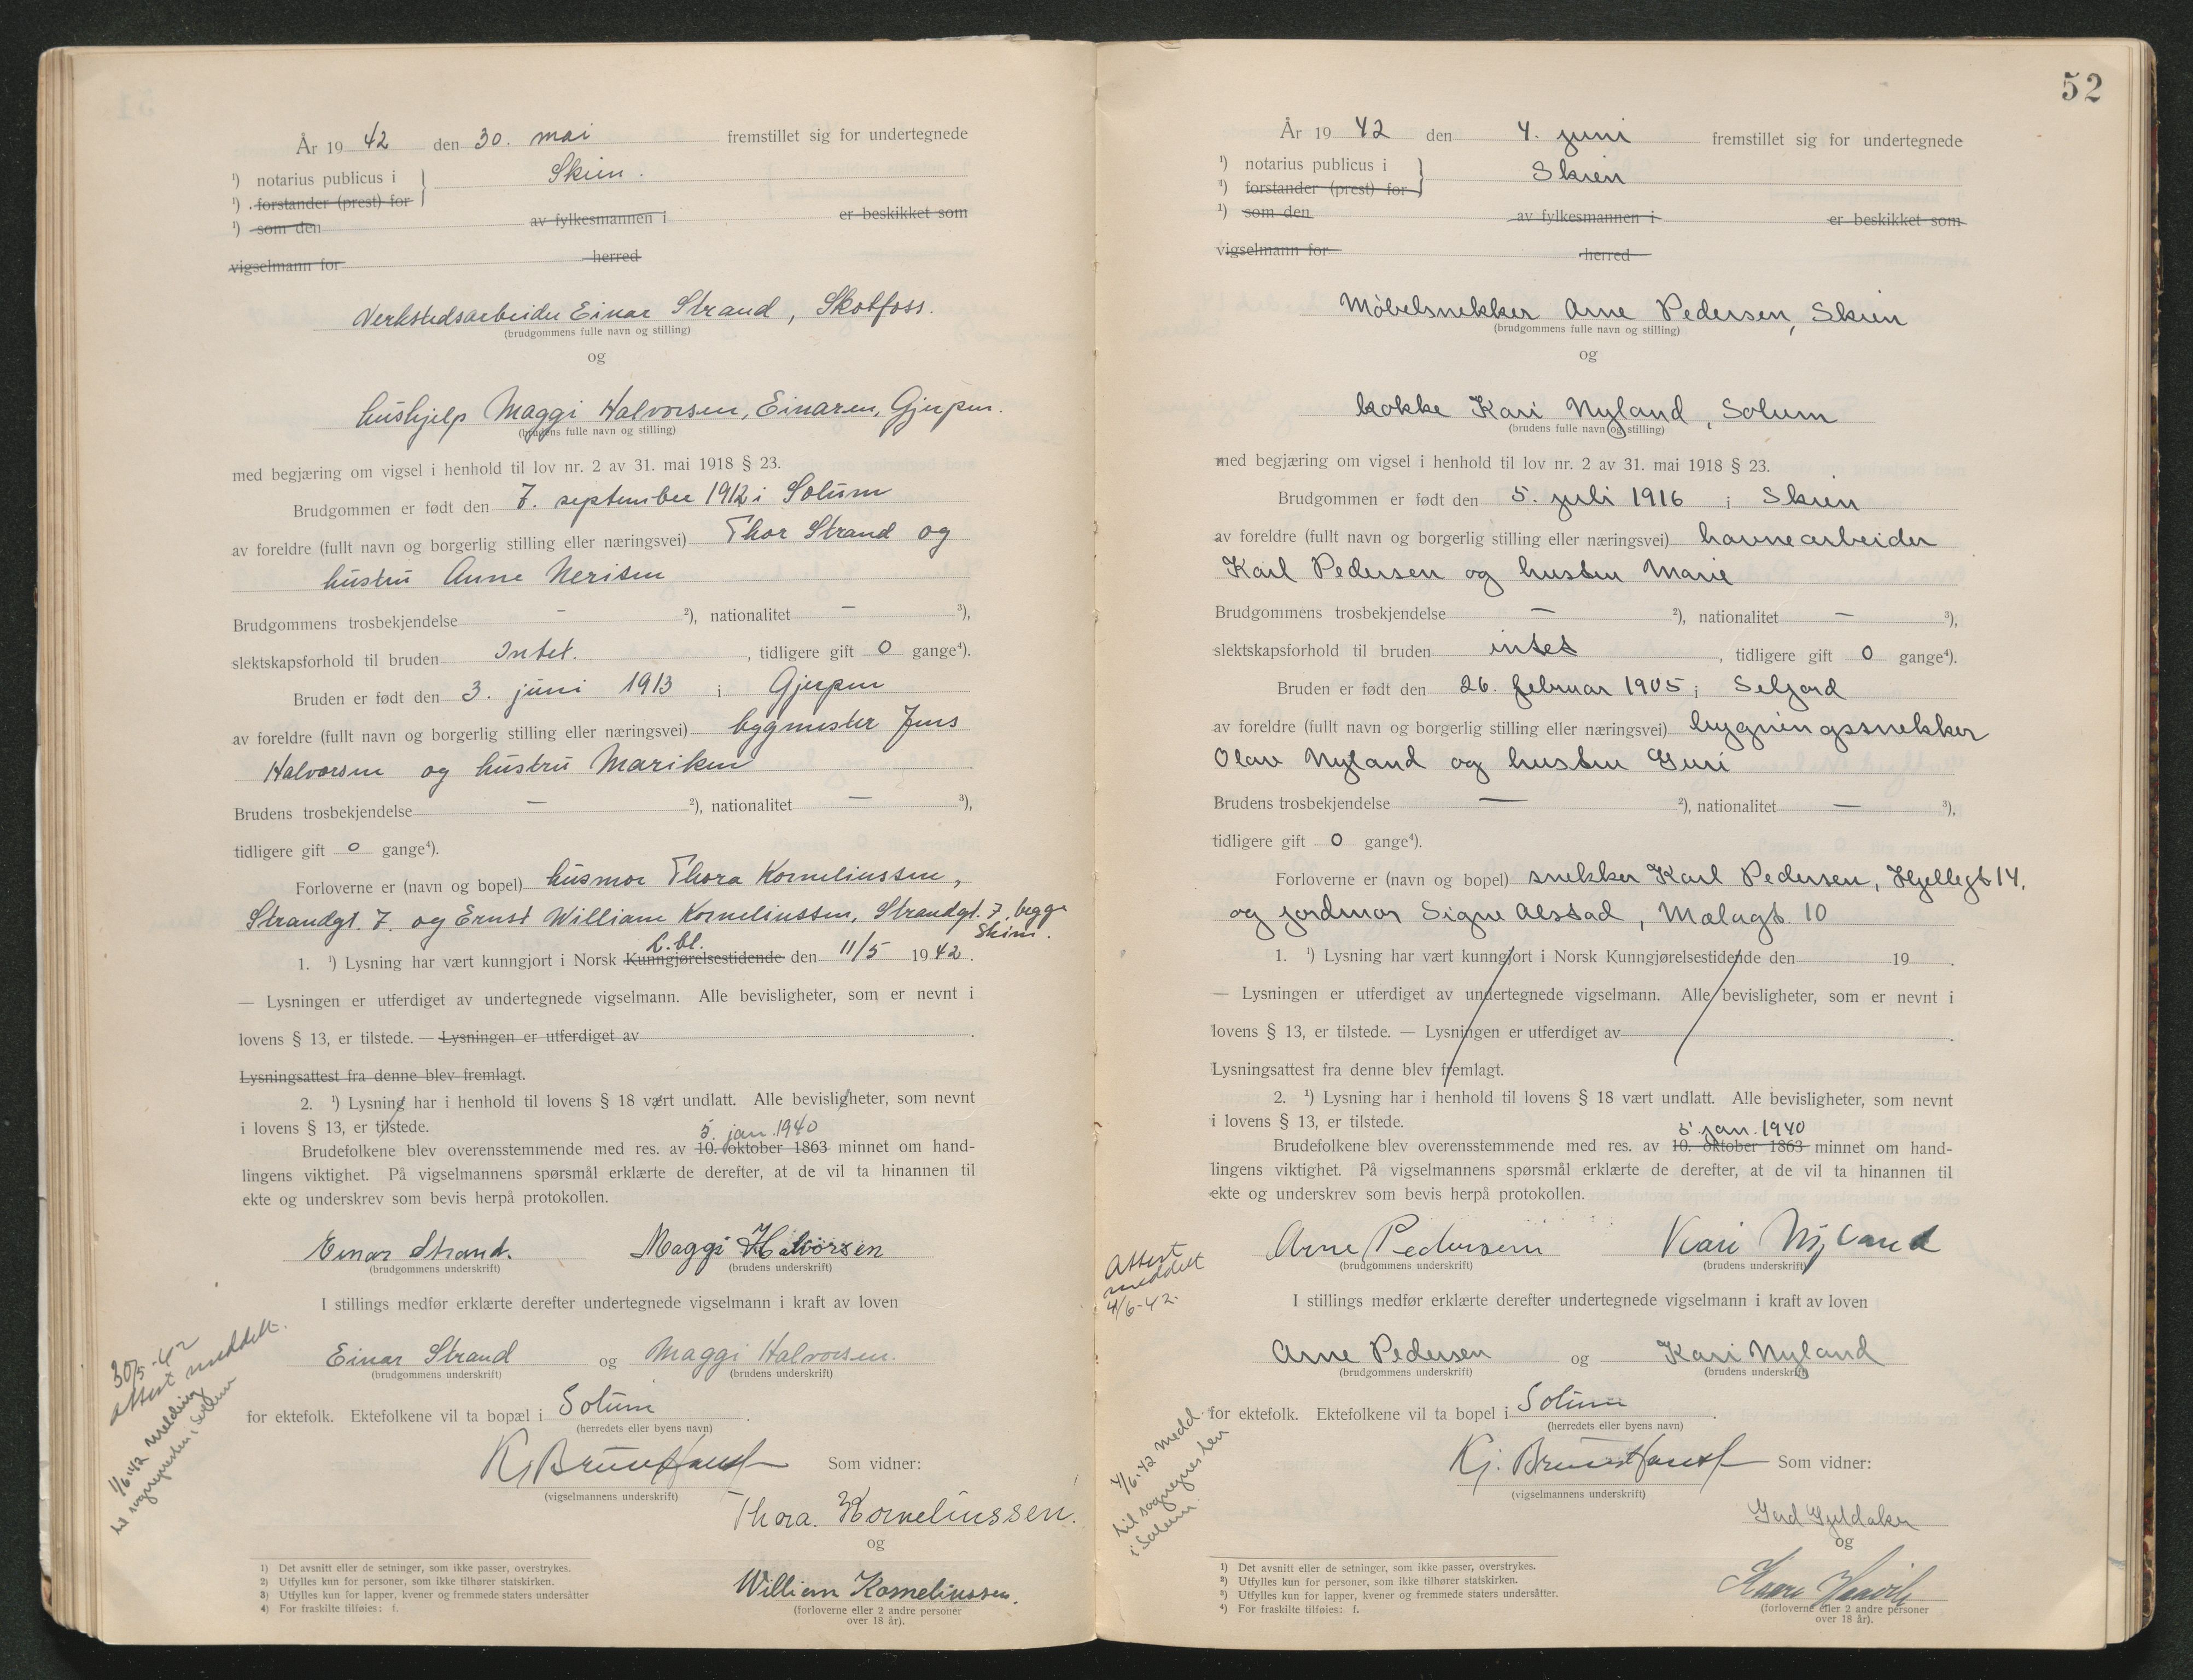 År 19 42 den 30. mai fremstillet sig for undertegnede
¹) notarius publicus i Skien.
¹) forstander (prest) for
¹) som den av fylkesmannen i er beskikket som
vigselmann for herred
Verkstedsarbeider Einar Strand, Skotfoss.
(brudgommens fulle navn og stilling)
og
hushjelp Maggi Halvorsen, Einaren, Gjerpen.
(brudens fulle navn og stilling)
med begjæring om vigsel i henhold til lov nr. 2 av 31. mai 1918 § 23.
Brudgommen er født den 7. september 1912 i Solum
av foreldre (fullt navn og borgerlig stilling eller næringsvei) Thor Strand og
hustru Anne Nerisen
Brudgommens trosbekjendelse — ²), nationalitet — ³),
slektskapsforhold til bruden Intet. , tidligere gift 0 gange⁴).
Bruden er født den 3. juni 1913 i Gjerpen
av foreldre (fullt navn og borgerlig stilling eller næringsvei) byggmester Jens
Halvorsen og hustru Mariken
Brudens trosbekjendelse — ²), nationalitet — ³),
tidligere gift 0 gange⁴).
Forloverne er (navn og bopel) husmor Thora Korneliussen,
Strandgt. 7. og Ernst William Korneliussen, Strandgt. 7, begge
Skien.
L. bl.
1. ¹) Lysning har vært kunngjort i Norsk Kunngjørelsestidende den 11/5 1942.
— Lysningen er utferdiget av undertegnede vigselmann. Alle bevisligheter, som er nevnt i
lovens § 13, er tilstede. — Lysningen er utferdiget av .
Lysningsattest fra denne blev fremlagt.
2. ¹) Lysning har i henhold til lovens § 18 vært undlatt. Alle bevisligheter, som nevnt
i lovens § 13, er tilstede.
5. jan. 1940
Brudefolkene blev overensstemmende med res. av 10. oktober 1863 minnet om hand-
lingens viktighet. På vigselmannens spørsmål erklærte de derefter, at de vil ta hinannen til
ekte og underskrev som bevis herpå protokollen.
Einar Strand. Maggi Halvorsen
(brudgommens underskrift) (brudens underskrift)
I stillings medfør erklærte derefter undertegnede vigselmann i kraft av loven
30/5-42
attest meddelt.
Einar Strand og Maggi Halvorsen.
(brudgommens underskrift) (brudens underskrift)
1/6 42 melding
til sognepresten i Solum
for ektefolk. Ektefolkene vil ta bopæl i Solum .
(herredets eller byens navn)
Som vidner:
(vigselmannens underskrift)
Thora. Korneliussen.
og
William Korneliussen.
(forloverne eller 2 andre personer
over 18 år).
1) Det avsnitt eller de setninger, som ikke passer, overstrykes.
2) Utfylles kun for personer, som ikke tilhører statskirken.
3) Utfylles kun for lapper, kvener og fremmede staters undersåtter
4) For fraskilte tilføies: f.
52
År 19 42 den 4. juni fremstillet sig for undertegnede
¹) notarius publicus i Skien
¹) forstander (prest) for
¹) som den av fylkesmannen i er beskikket som
vigselmann for herred
Møbelsnekker Arne Pedersen, Skien
(brudgommens fulle navn og stilling)
og
kokke Kari Nyland, Solum
(brudens fulle navn og stilling)
med begjæring om vigsel i henhold til lov nr. 2 av 31. mai 1918 § 23.
Brudgommen er født den 5. juli 1916 i Skien
av foreldre (fullt navn og borgerlig stilling eller næringsvei) havnearbeider
Karl Pedersen og hustru Marie
Brudgommens trosbekjendelse — ²), nationalitet — ³),
slektskapsforhold til bruden intet , tidligere gift 0 gange⁴).
Bruden er født den 26. februar 1905 i Seljord
av foreldre (fullt navn og borgerlig stilling eller næringsvei) bygningssnekker
Olav Nyland og hustru Guri
Brudens trosbekjendelse — ²), nationalitet — ³),
tidligere gift 0 gange⁴).
Forloverne er (navn og bopel) snekker Karl Pedersen, Hjellegt 14,
og jordmor Signe Alstad, Mælagt. 10
1. ¹) Lysning har vært kunngjort i Norsk Kunngjørelsestidende den 19 .
— Lysningen er utferdiget av undertegnede vigselmann. Alle bevisligheter, som er nevnt i
lovens § 13, er tilstede. — Lysningen er utferdiget av .
Lysningsattest fra denne blev fremlagt.
2. ¹) Lysning har i henhold til lovens § 18 vært undlatt. Alle bevisligheter, som nevnt
i lovens § 13, er tilstede.
5. jan. 1940
Brudefolkene blev overensstemmende med res. av 10. oktober 1863 minnet om hand-
lingens viktighet. På vigselmannens spørsmål erklærte de derefter, at de vil ta hinannen til
ekte og underskrev som bevis herpå protokollen.
Arne Pedersen Kari Nyland
(brudgommens underskrift) (brudens underskrift)
Attest
meddelt
4/6-42.
I stillings medfør erklærte derefter undertegnede vigselmann i kraft av loven
Arne Pedersen og Kari Nyland
(brudgommens underskrift) (brudens underskrift)
4/6-42 medd.
til sognepresten
i Solum.
for ektefolk. Ektefolkene vil ta bopel i Solum .
(herredets eller byens navn)
Som vidner:
(vigselmannens underskrift)
og
(forloverne eller 2 andre personer
over 18 år).
1) Det avsnitt eller de setninger, som ikke passer, overstrykes.
2) Utfylles kun for personer, som ikke tilhører statskirken.
3) Utfylles kun for lapper, kvener og fremmede staters undersåtter.
4) For fraskilte tilføies: f.